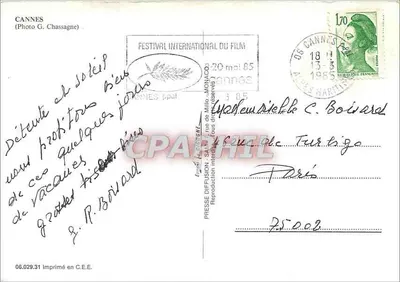 CANNES
(Photo G. Chassagne)
FESTIVAL INTERNATIONAL DU FILM
20 mai 85
CANNES
06 CANNES
18 H
13-3
1985
ALPES MARITIMES
1,70
Détente et soleil
nous profitons bien
de ces quelques jours
de vacances
grosses bises
R. Boisard
Mademoiselle C. Boisard
rue de Turbigo
Paris
75002
CPARAMA
PRESSE DIFFUSION - MONACO
Reproduction interdite
06.029.31 Imprimé en C.E.E.